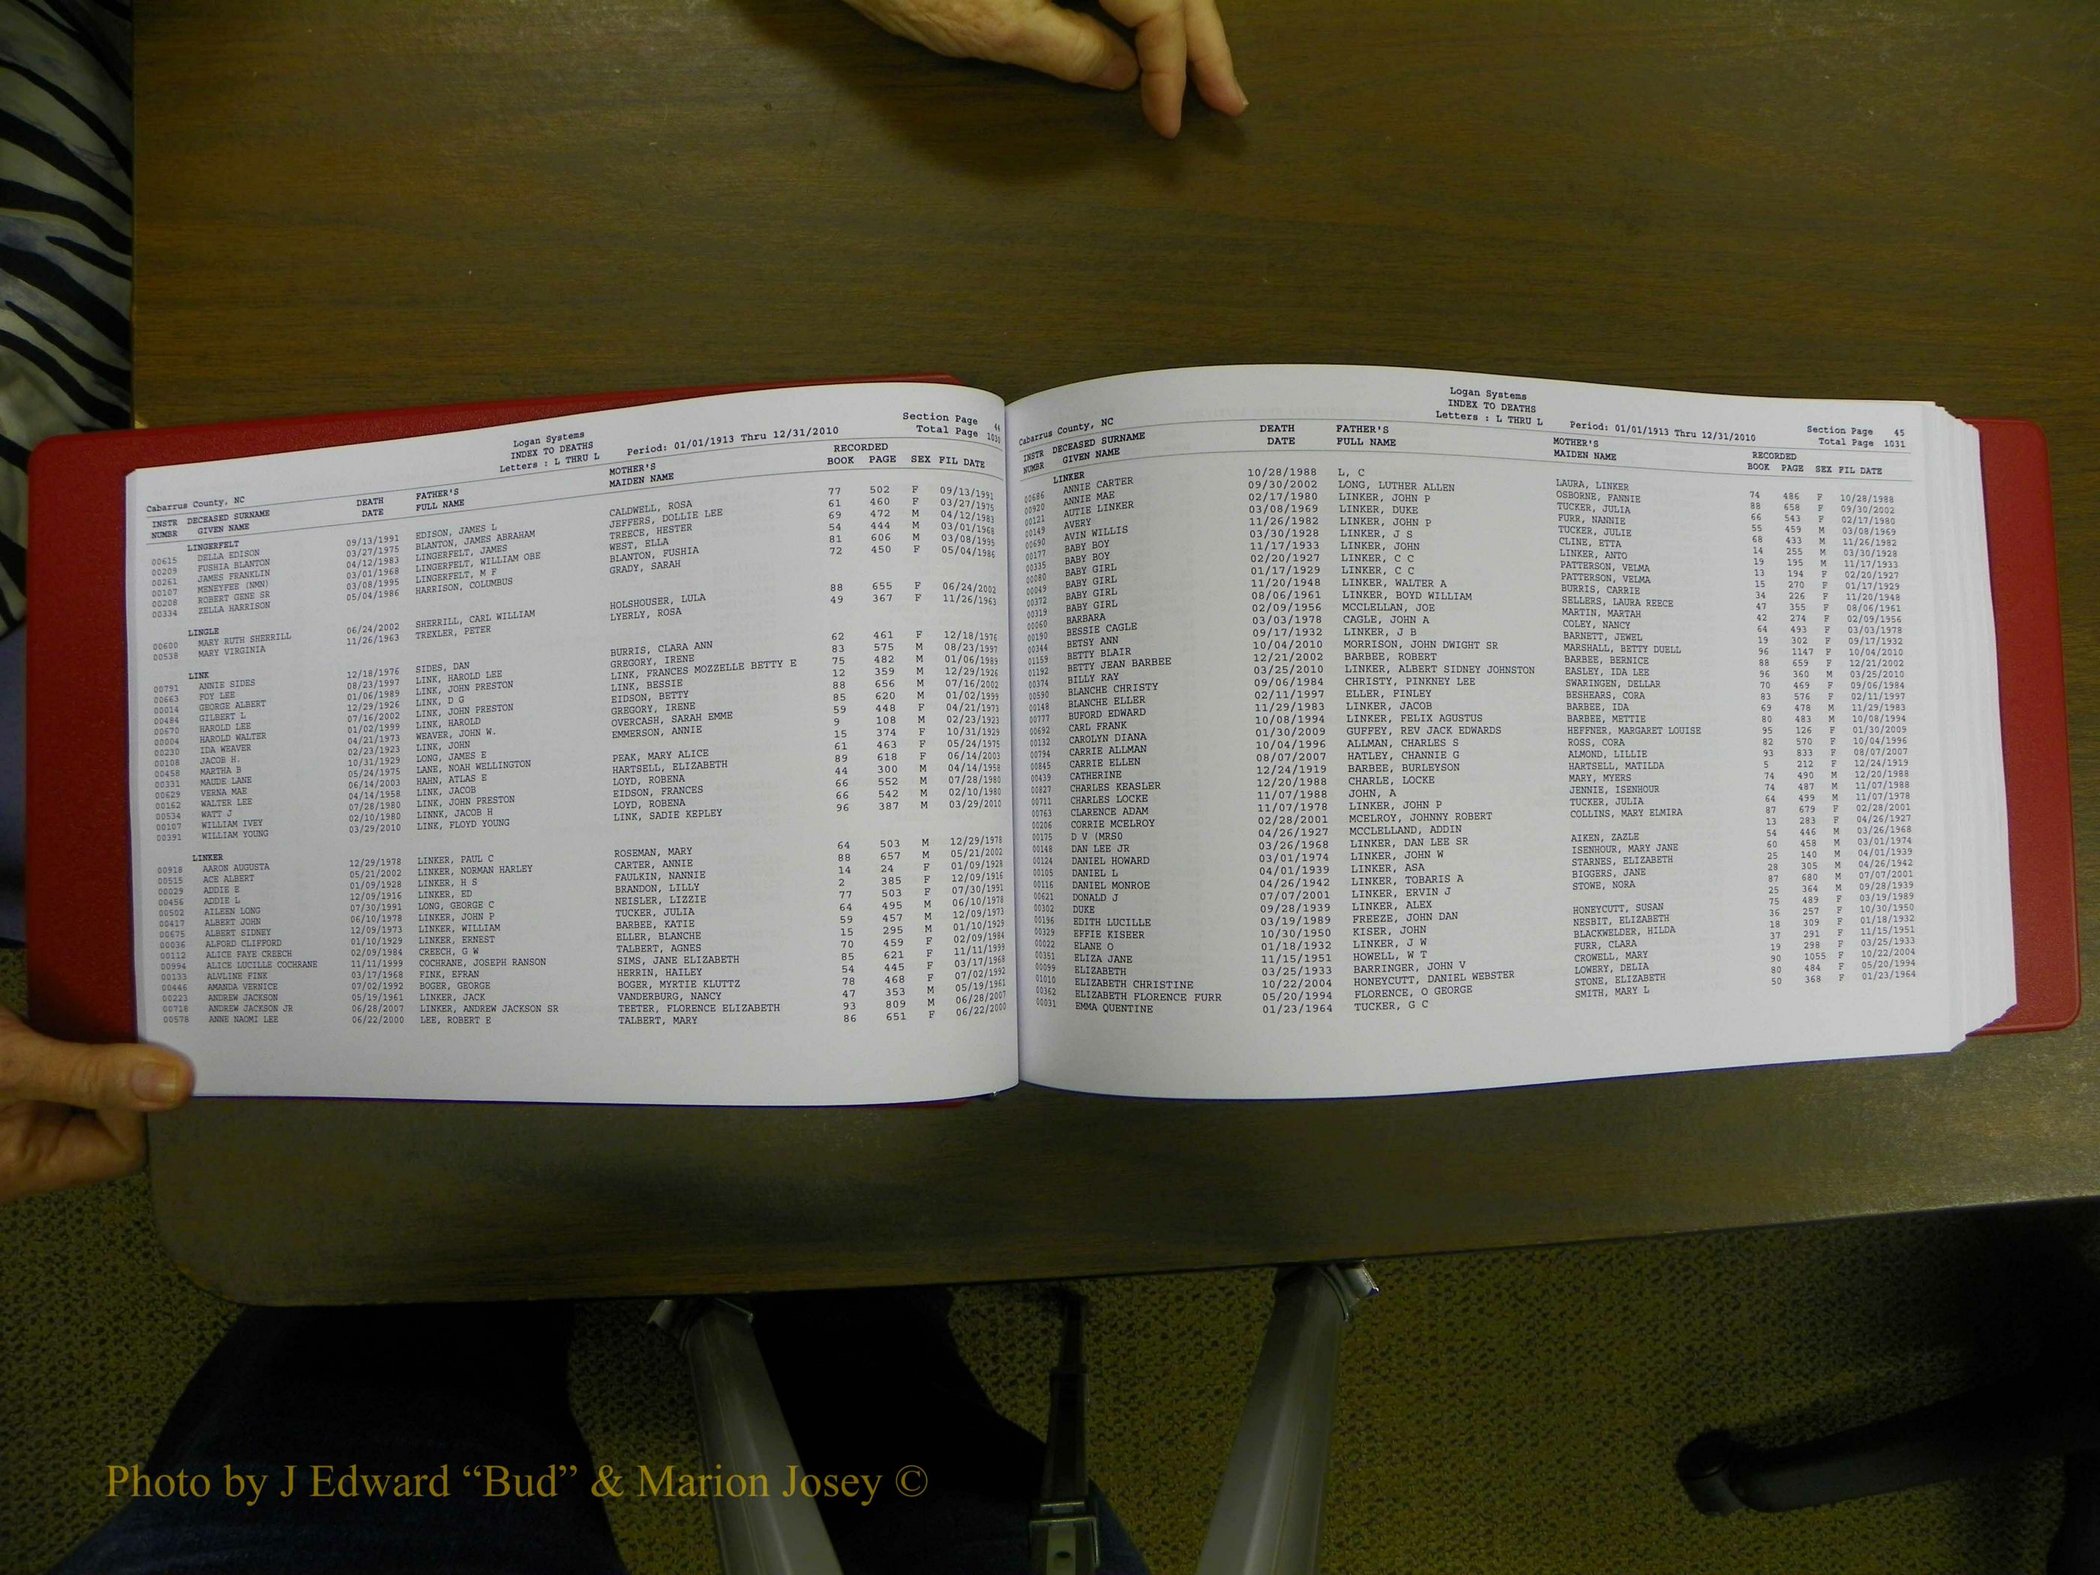 Logan Systems
INDEX TO DEATHS
Letters : L THRU L
Period: 01/01/1913 Thru 12/31/2010
Section Page 44
Total Page 1030
Cabarrus County, NC
INSTR NUMBR DECEASED SURNAME GIVEN NAME DEATH DATE FATHER'S FULL NAME MOTHER'S MAIDEN NAME RECORDED BOOK PAGE SEX FIL DATE
LINGERFELT
00615 DELLA EDISON 09/13/1991 EDISON, JAMES L CALDWELL, ROSA 77 502 F 09/13/1991
00209 FUSHIA BLANTON 03/27/1975 BLANTON, JAMES ABRAHAM JEFFERS, DOLLIE LEE 61 460 F 03/27/1975
00261 JAMES FRANKLIN 04/12/1983 LINGERFELT, JAMES TREECE, HESTER 69 472 M 04/12/1983
00107 MENEYFEE (NMN) 03/01/1968 LINGERFELT, WILLIAM OBE WEST, ELLA 54 444 M 03/01/1968
00208 ROBERT GENE SR 03/08/1995 LINGERFELT, M F BLANTON, FUSHIA 81 606 M 03/08/1995
00334 ZELLA HARRISON 05/04/1986 HARRISON, COLUMBUS GRADY, SARAH 72 450 F 05/04/1986
LINGLE
00600 MARY RUTH SHERRILL 06/24/2002 SHERRILL, CARL WILLIAM HOLSHOUSER, LULA 88 655 F 06/24/2002
00538 MARY VIRGINIA 11/26/1963 TREXLER, PETER LYERLY, ROSA 49 367 F 11/26/1963
LINK
00791 ANNIE SIDES 12/18/1976 SIDES, DAN BURRIS, CLARA ANN 62 461 F 12/18/1976
00663 FOY LEE 08/23/1997 LINK, HAROLD LEE GREGORY, IRENE 83 575 M 08/23/1997
00014 GEORGE ALBERT 01/06/1989 LINK, JOHN PRESTON LINK, FRANCES MOZZELLE BETTY E 75 482 M 01/06/1989
00484 GILBERT L 12/29/1926 LINK, D G LINK, BESSIE 12 359 M 12/29/1926
00670 HAROLD LEE 07/16/2002 LINK, JOHN PRESTON EIDSON, BETTY 88 656 M 07/16/2002
00004 HAROLD WALTER 01/02/1999 LINK, HAROLD GREGORY, IRENE 85 620 M 01/02/1999
00230 IDA WEAVER 04/21/1973 WEAVER, JOHN W. OVERCASH, SARAH EMME 59 448 F 04/21/1973
00108 JACOB H. 02/23/1923 LINK, JOHN EMMERSON, ANNIE 9 108 M 02/23/1923
00458 MARTHA B 10/31/1929 LONG, JAMES E 15 374 F 10/31/1929
00331 MAUDE LANE 05/24/1975 LANE, NOAH WELLINGTON PEAK, MARY ALICE 61 463 F 05/24/1975
00629 VERNA MAE 06/14/2003 HAHN, ATLAS E HARTSELL, ELIZABETH 89 618 F 06/14/2003
00162 WALTER LEE 04/14/1958 LINK, JACOB LOYD, ROBENA 44 300 M 04/14/1958
00534 WATT J 07/28/1980 LINK, JOHN PRESTON EIDSON, FRANCES 66 552 M 07/28/1980
00107 WILLIAM IVEY 02/10/1980 LINNK, JACOB H LOYD, ROBENA 66 542 M 02/10/1980
00391 WILLIAM YOUNG 03/29/2010 LINK, FLOYD YOUNG LINK, SADIE KEPLEY 96 387 M 03/29/2010
LINKER
00918 AARON AUGUSTA 12/29/1978 LINKER, PAUL C ROSEMAN, MARY 64 503 M 12/29/1978
00515 ACE ALBERT 05/21/2002 LINKER, NORMAN HARLEY CARTER, ANNIE 88 657 M 05/21/2002
00029 ADDIE E 01/09/1928 LINKER, H S FAULKIN, NANNIE 14 24 F 01/09/1928
00456 ADDIE L 12/09/1916 LINKER, ED BRANDON, LILLY 2 385 F 12/09/1916
00502 AILEEN LONG 07/30/1991 LONG, GEORGE C NEISLER, LIZZIE 77 503 F 07/30/1991
00417 ALBERT JOHN 06/10/1978 LINKER, JOHN P TUCKER, JULIA 64 495 M 06/10/1978
00675 ALBERT SIDNEY 12/09/1973 LINKER, WILLIAM BARBEE, KATIE 59 457 M 12/09/1973
00036 ALFORD CLIFFORD 01/10/1929 LINKER, ERNEST ELLER, BLANCHE 15 295 M 01/10/1929
00112 ALICE FAYE CREECH 02/09/1984 CREECH, G W TALBERT, AGNES 70 459 F 02/09/1984
00994 ALICE LUCILLE COCHRANE 11/11/1999 COCHRANE, JOSEPH RANSON SIMS, JANE ELIZABETH 85 621 F 11/11/1999
00133 ALVLINE FINK 03/17/1968 FINK, EFRAN HERRIN, HAILEY 54 445 F 03/17/1968
00446 AMANDA VERNICE 07/02/1992 BOGER, GEORGE BOGER, MYRTIE KLUTTZ 78 468 F 07/02/1992
00223 ANDREW JACKSON 05/19/1961 LINKER, JACK VANDERBURG, NANCY 47 353 M 05/19/1961
00718 ANDREW JACKSON JR 06/28/2007 LINKER, ANDREW JACKSON SR TEETER, FLORENCE ELIZABETH 93 809 M 06/28/2007
00578 ANNE NAOMI LEE 06/22/2000 LEE, ROBERT E TALBERT, MARY 86 651 F 06/22/2000
Logan Systems
INDEX TO DEATHS
Letters : L THRU L
Period: 01/01/1913 Thru 12/31/2010
Section Page 45
Total Page 1031
Cabarrus County, NC
INSTR NUMBR DECEASED SURNAME GIVEN NAME DEATH DATE FATHER'S FULL NAME MOTHER'S MAIDEN NAME RECORDED BOOK PAGE SEX FIL DATE
LINKER
00686 ANNIE CARTER 10/28/1988 L, C LAURA, LINKER 74 486 F 10/28/1988
00920 ANNIE MAE 09/30/2002 LONG, LUTHER ALLEN OSBORNE, FANNIE 88 658 F 09/30/2002
00121 AUTIE LINKER 02/17/1980 LINKER, JOHN P TUCKER, JULIA 66 543 F 02/17/1980
00149 AVERY 03/08/1969 LINKER, DUKE FURR, NANNIE 55 459 M 03/08/1969
00690 AVIN WILLIS 11/26/1982 LINKER, JOHN P TUCKER, JULIE 68 433 M 11/26/1982
00177 BABY BOY 03/30/1928 LINKER, J S CLINE, ETTA 14 255 M 03/30/1928
00335 BABY BOY 11/17/1933 LINKER, JOHN LINKER, ANTO 19 195 M 11/17/1933
00080 BABY GIRL 02/20/1927 LINKER, C C PATTERSON, VELMA 13 194 F 02/20/1927
00049 BABY GIRL 01/17/1929 LINKER, C C PATTERSON, VELMA 15 270 F 01/17/1929
00372 BABY GIRL 11/20/1948 LINKER, WALTER A BURRIS, CARRIE 34 226 F 11/20/1948
00319 BABY GIRL 08/06/1961 LINKER, BOYD WILLIAM SELLERS, LAURA REECE 47 355 F 08/06/1961
00060 BARBARA 02/09/1956 MCCLELLAN, JOE MARTIN, MARTAH 42 274 F 02/09/1956
00190 BESSIE CAGLE 03/03/1978 CAGLE, JOHN A COLEY, NANCY 64 493 F 03/03/1978
00344 BETSY ANN 09/17/1932 LINKER, J B BARNETT, JEWEL 19 302 F 09/17/1932
01159 BETTY BLAIR 10/04/2010 MORRISON, JOHN DWIGHT SR MARSHALL, BETTY DUELL 96 1147 F 10/04/2010
01192 BETTY JEAN BARBEE 12/21/2002 BARBEE, ROBERT BARBEE, BERNICE 88 659 F 12/21/2002
00374 BILLY RAY 03/25/2010 LINKER, ALBERT SIDNEY JOHNSTON EASLEY, IDA LEE 96 360 M 03/25/2010
00590 BLANCHE CHRISTY 09/06/1984 CHRISTY, PINKNEY LEE SWARINGEN, DELLAR 70 469 F 09/06/1984
00148 BLANCHE ELLER 02/11/1997 ELLER, FINLEY BESHEARS, CORA 83 576 F 02/11/1997
00777 BUFORD EDWARD 11/29/1983 LINKER, JACOB BARBEE, IDA 69 478 M 11/29/1983
00692 CARL FRANK 10/08/1994 LINKER, FELIX AGUSTUS BARBEE, METTIE 80 483 M 10/08/1994
00132 CAROLYN DIANA 01/30/2009 GUFFEY, REV JACK EDWARDS HEFFNER, MARGARET LOUISE 95 126 F 01/30/2009
00794 CARRIE ALLMAN 10/04/1996 ALLMAN, CHARLES S ROSS, CORA 82 570 F 10/04/1996
00845 CARRIE ELLEN 08/07/2007 HATLEY, CHANNIE G ALMOND, LILLIE 93 833 F 08/07/2007
00439 CATHERINE 12/24/1919 BARBEE, BURLEYSON HARTSELL, MATILDA 5 212 F 12/24/1919
00827 CHARLES KEASLER 12/20/1988 CHARLE, LOCKE MARY, MYERS 74 490 M 12/20/1988
00711 CHARLES LOCKE 11/07/1988 JOHN, A JENNIE, ISENHOUR 74 487 M 11/07/1988
00763 CLARENCE ADAM 11/07/1978 LINKER, JOHN P TUCKER, JULIA 64 499 M 11/07/1978
00206 CORRIE MCELROY 02/28/2001 MCELROY, JOHNNY ROBERT COLLINS, MARY ELMIRA 87 679 F 02/28/2001
00175 D V (MRS0 04/26/1927 MCCLELLAND, ADDIN 13 283 F 04/26/1927
00148 DAN LEE JR 03/26/1968 LINKER, DAN LEE SR AIKEN, ZAZLE 54 446 M 03/26/1968
00124 DANIEL HOWARD 03/01/1974 LINKER, JOHN W ISENHOUR, MARY JANE 60 458 M 03/01/1974
00105 DANIEL L 04/01/1939 LINKER, ASA STARNES, ELIZABETH 25 140 M 04/01/1939
00116 DANIEL MONROE 04/26/1942 LINKER, TOBARIS A BIGGERS, JANE 28 305 M 04/26/1942
00621 DONALD J 07/07/2001 LINKER, ERVIN J STOWE, NORA 87 680 M 07/07/2001
00302 DUKE 09/28/1939 LINKER, ALEX 25 364 M 09/28/1939
00196 EDITH LUCILLE 03/19/1989 FREEZE, JOHN DAN HONEYCUTT, SUSAN 75 489 F 03/19/1989
00329 EFFIE KISEER 10/30/1950 KISER, JOHN NESBIT, ELIZABETH 36 257 F 10/30/1950
00022 ELANE O 01/18/1932 LINKER, J W BLACKWELDER, HILDA 18 309 F 01/18/1932
00351 ELIZA JANE 11/15/1951 HOWELL, W T FURR, CLARA 37 291 F 11/15/1951
00099 ELIZABETH 03/25/1933 BARRINGER, JOHN V CROWELL, MARY 19 298 F 03/25/1933
01010 ELIZABETH CHRISTINE 10/22/2004 HONEYCUTT, DANIEL WEBSTER LOWERY, DELIA 90 1055 F 10/22/2004
00362 ELIZABETH FLORENCE FURR 05/20/1994 FLORENCE, O GEORGE STONE, ELIZABETH 80 484 F 05/20/1994
00031 EMMA QUENTINE 01/23/1964 TUCKER, G C SMITH, MARY L 50 368 F 01/23/1964
Photo by J Edward “Bud” & Marion Josey ©